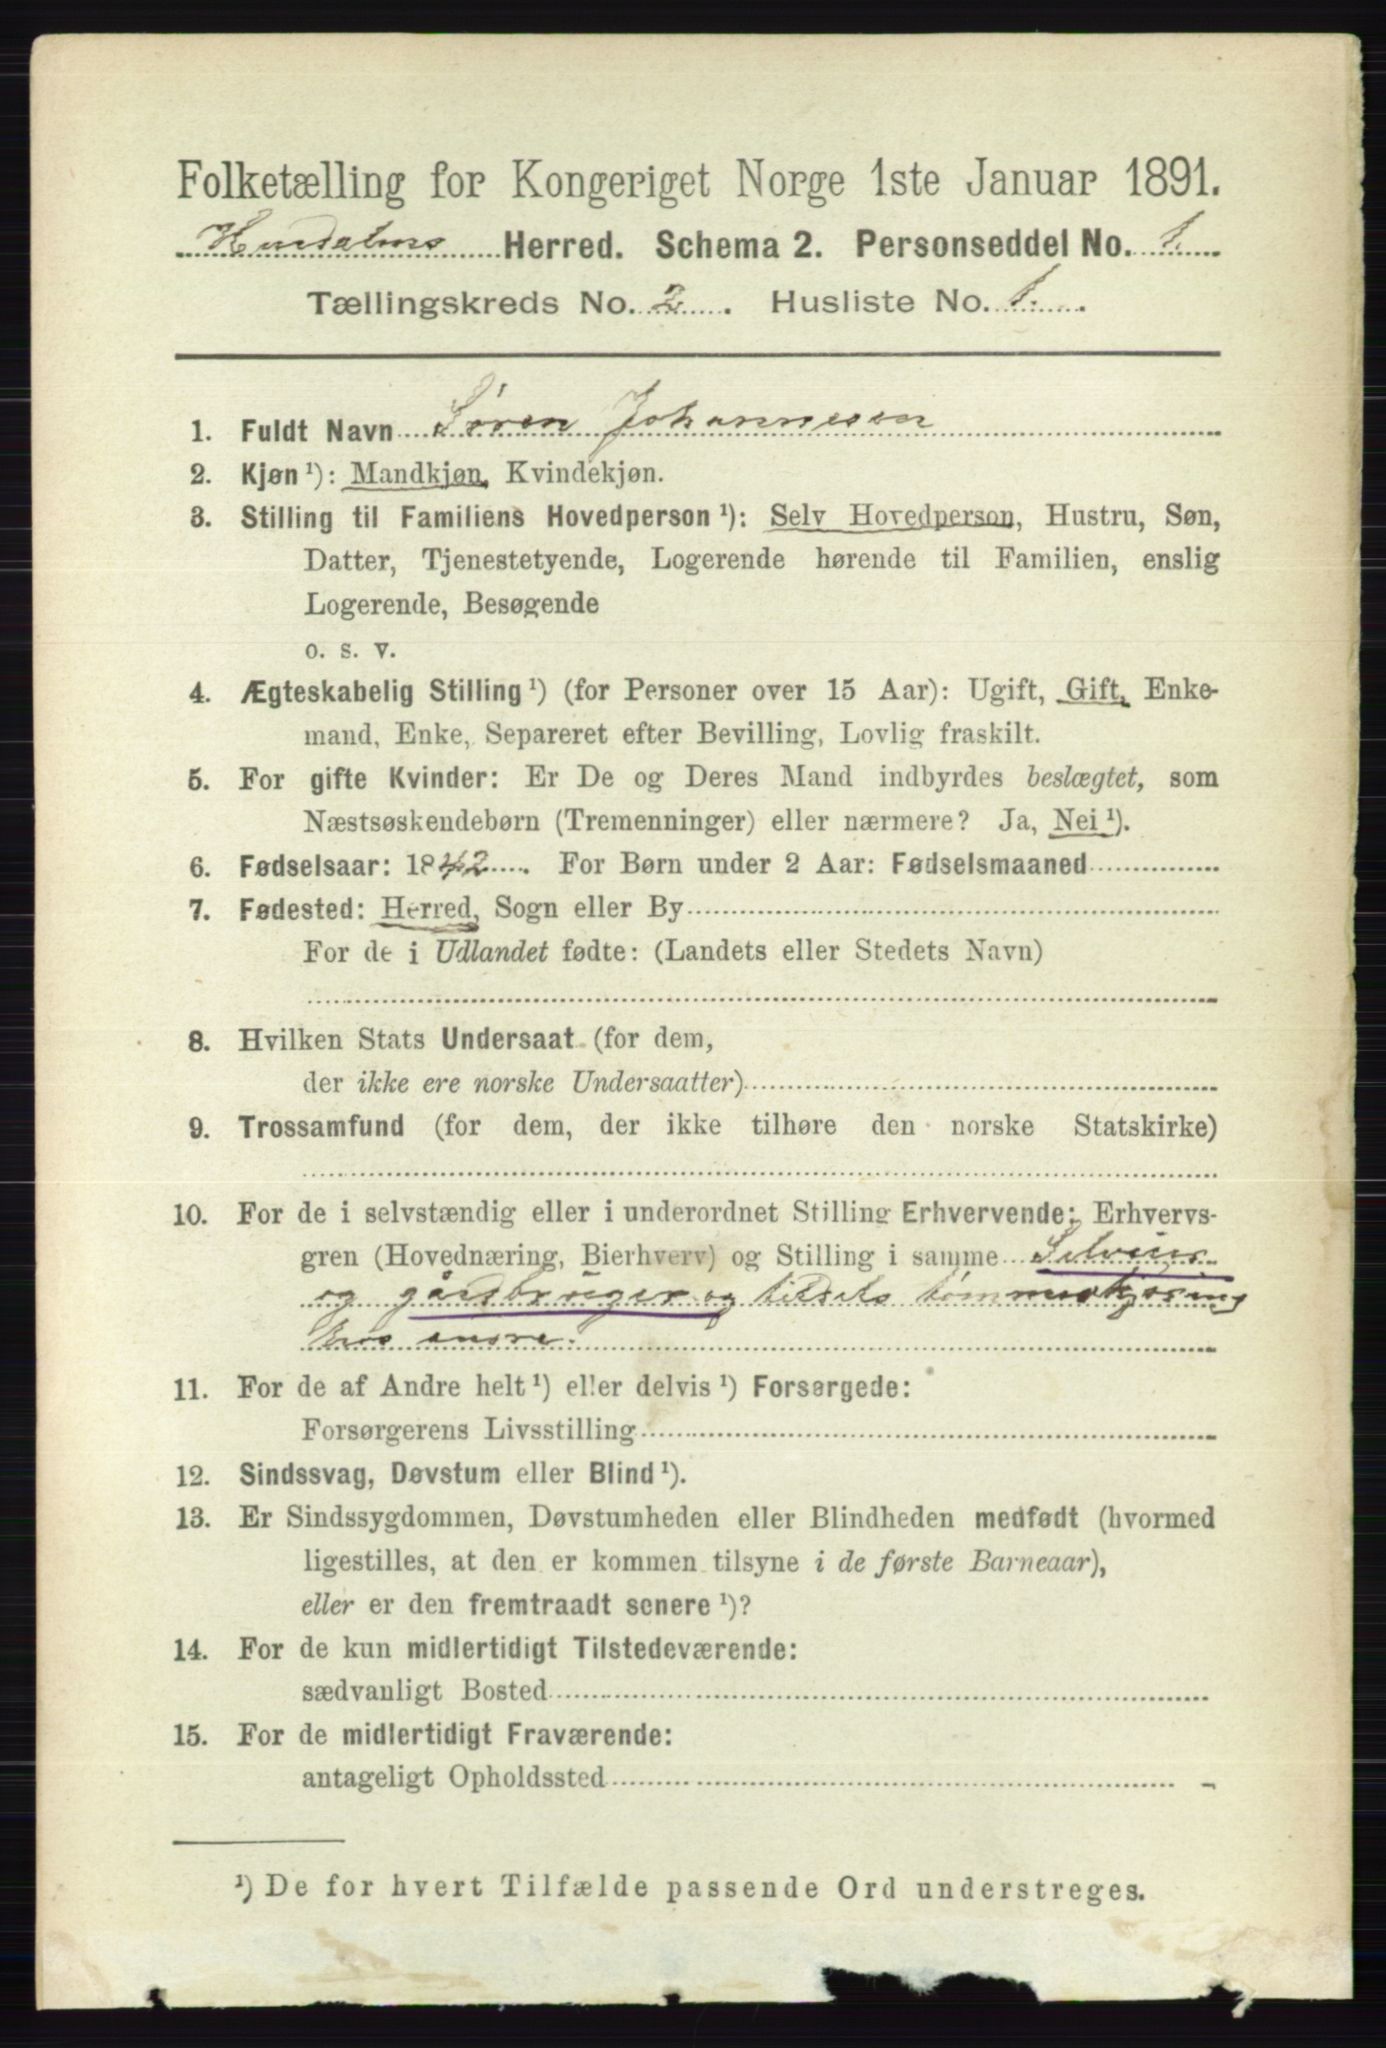 Folketælling for Kongeriget Norge 1ste Januar 1891.
Hurdalens Herred. Schema 2. Personseddel No. 1.
Tællingskreds No. 2. Husliste No. 1.
1. Fuldt Navn Søren Johannesen
2. Kjøn ¹): Mandkjøn, Kvindekjøn.
3. Stilling til Familiens Hovedperson ¹): Selv Hovedperson, Hustru, Søn,
Datter, Tjenestetyende, Logerende hørende til Familien, enslig
Logerende, Besøgende
o. s. v.
4. Ægteskabelig Stilling ¹) (for Personer over 15 Aar): Ugift, Gift, Enke-
mand, Enke, Separeret efter Bevilling, Lovlig fraskilt.
5. For gifte Kvinder: Er De og Deres Mand indbyrdes beslægtet, som
Næstsøskendebørn (Tremenninger) eller nærmere? Ja, Nei ¹).
6. Fødselsaar: 1842. For Børn under 2 Aar: Fødselsmaaned
7. Fødested: Herred, Sogn eller By
For de i Udlandet fødte: (Landets eller Stedets Navn)
8. Hvilken Stats Undersaat (for dem,
der ikke ere norske Undersaatter)
9. Trossamfund (for dem, der ikke tilhøre den norske Statskirke)
10. For de i selvstændig eller i underordnet Stilling Erhvervende: Erhvervs-
gren (Hovednæring, Bierhverv) og Stilling i samme Selveier
og gårdbruger og tildels tømmerkjøring
hos andre.
11. For de af Andre helt ¹) eller delvis ¹) Forsørgede:
Forsørgerens Livsstilling
12. Sindssvag, Døvstum eller Blind ¹).
13. Er Sindssygdommen, Døvstumheden eller Blindheden medfødt (hvormed
ligestilles, at den er kommen tilsyne i de første Barneaar),
eller er den fremtraadt senere ¹)?
14. For de kun midlertidigt Tilstedeværende:
sædvanligt Bosted
15. For de midlertidigt Fraværende:
antageligt Opholdssted
¹) De for hvert Tilfælde passende Ord understreges.